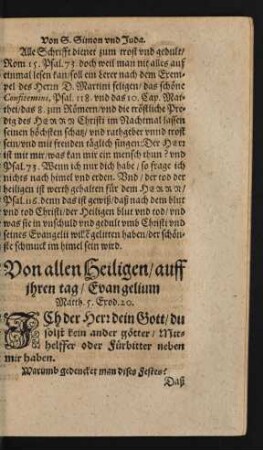 Von S. Simon vnd Juda.
Alle Schrifft dienet zum trost vnd gedult/
Rom 15. Psal. 73. doch weil man nit alles auff
einmal lesen kan/soll ein jeder nach dem Exem-
pel des Herrn D. Martini seligen/das schöne
Confitemini, Psal. 118. vnd das 10. Cap. Mat-
thei/das 8. zun Römern/vnd die tröstliche Pre-
dig des HERRN Christi im Nachtmal lassen
seinen höchsten schatz/vnd rathgeber vnnd trost
sein/vnd mit freuden täglich singen: Der Herr
ist mit mir/was kan mir ein mensch thun? vnd
Psal. 73. Wenn ich nur dich habe/so frage ich
nichts nach himel vnd erden. Vnd/der tod der
heiligen ist werth gehalten für dem HERRN/
Psal. 116. denn das ist gewiß/daß nach dem blut
vnd tod Christi/der Heiligen blut vnd tod/vnd
was sie in vnschuld vnd gedult vmb Christi vnd
seines Evangelii willē gelitten haben/der schön-
ste schmuck im himel sein wird.
Von allen Heiligen/auff
jhren tag/Evangelium
Matth. 5. Exod. 20.
ICh der Herr dein Gott/du
solst kein ander götter/Mit-
helffer oder Fürbitter neben
mir haben.
Warumb gedencket man dises Festes?
Daß